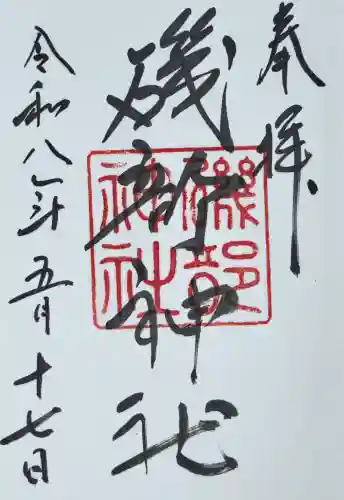 奉拝
磯部神社
磯部
神社
令和八年五月十七日